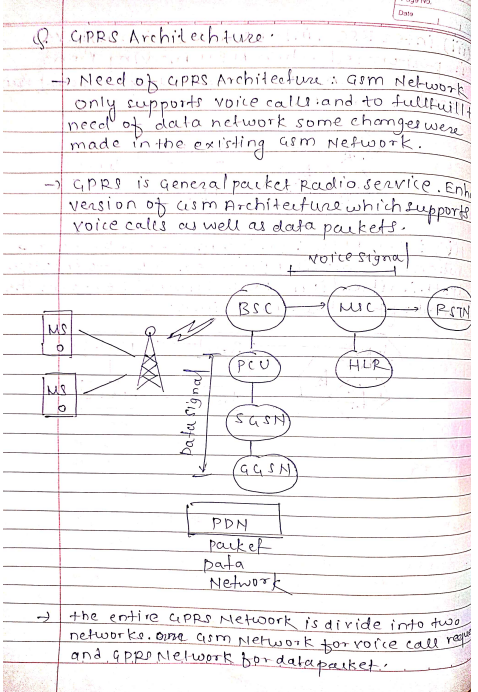 Page No.
Date
Q. GPRS Architechture.
→ Need of GPRS Architecture : Gsm Network
only supports voice calls and to fullfuill t
need of data network some changes were
made in the existing Gsm Network.
→ GPRS is General packet Radio service. Enh
version of Gsm Architecture which supports
voice calls as well as data packets.
voice signal
BSC
MSC
PSTN
MS
MS
PCU
HLR
Data signal
SGSN
GGSN
PDN
packet
Data
Network
→ the entire GPRS Network is divide into two
networks. one Gsm Network for voice call reque
and GPRS Network for data packet.